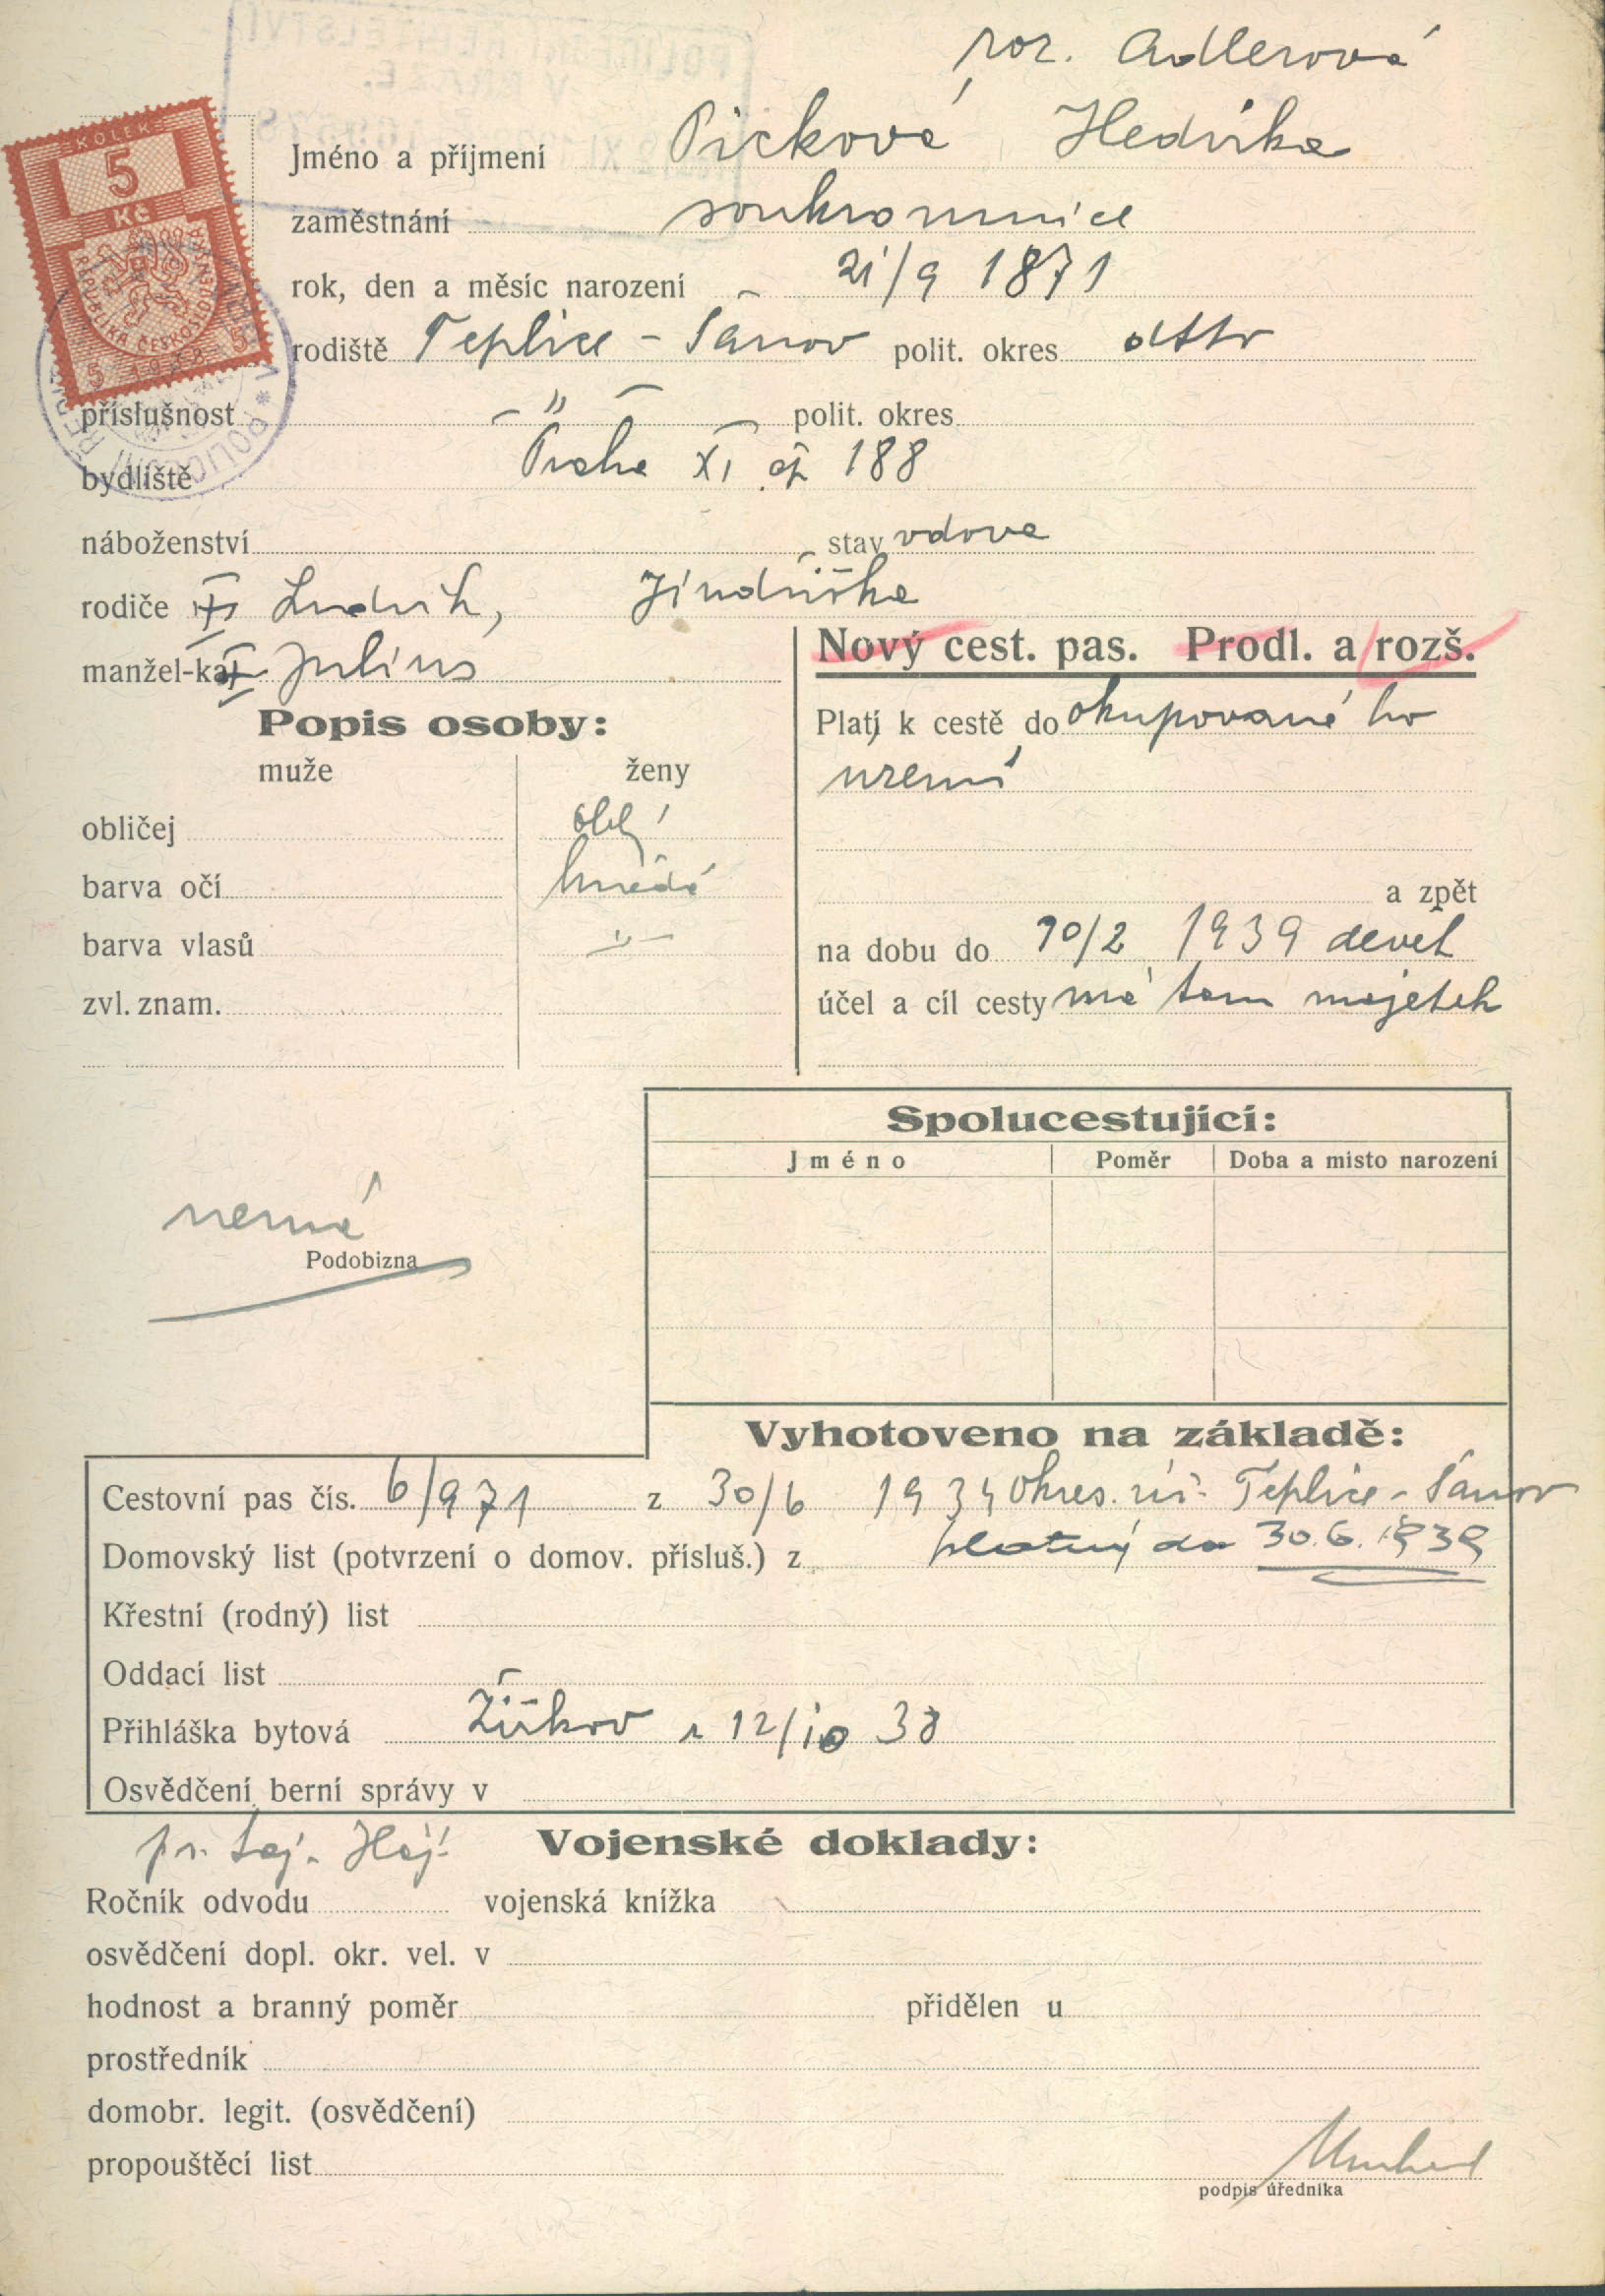 roz. Adlerová
KOLEK
5
Kč
REPUBLIKA ČESKOSLOVENSKÁ
Jméno a příjmení Picková Hedvika
zaměstnání soukromnice
rok, den a měsíc narození 21/9 1871
rodiště Teplice - Šanov polit. okres dtto
příslušnost — " — polit. okres
bydliště Praha XI čp 188
náboženství stav vdova
rodiče Ludvík, Jindřiška
manžel-ka Julius
Nový cest. pas. Prodl. a rozš.
Popis osoby:
Platí k cestě do okupovaného
území
muže ženy
obličej oblý
barva očí hnědé
a zpět
barva vlasů -"-
na dobu do 10/2 1939 devět
zvl. znam.
účel a cíl cesty má tam majetek
Spolucestující:
Jméno Poměr Doba a místo narození
nemá
Podobizna
Vyhotoveno na základě:
Cestovní pas čís. 6/971 z 30/6 1934 okres. úř. Teplice - Šanov
Domovský list (potvrzení o domov. přísluš.) z platný do 30.6.1939
Křestní (rodný) list
Oddací list
Přihláška bytová Žižkov z 12/10 38
Osvědčení berní správy v
Vojenské doklady:
Ročník odvodu vojenská knížka
osvědčení dopl. okr. vel. v
hodnost a branný poměr přidělen u
prostředník
domobr. legit. (osvědčení)
propouštěcí list
podpis úředníka